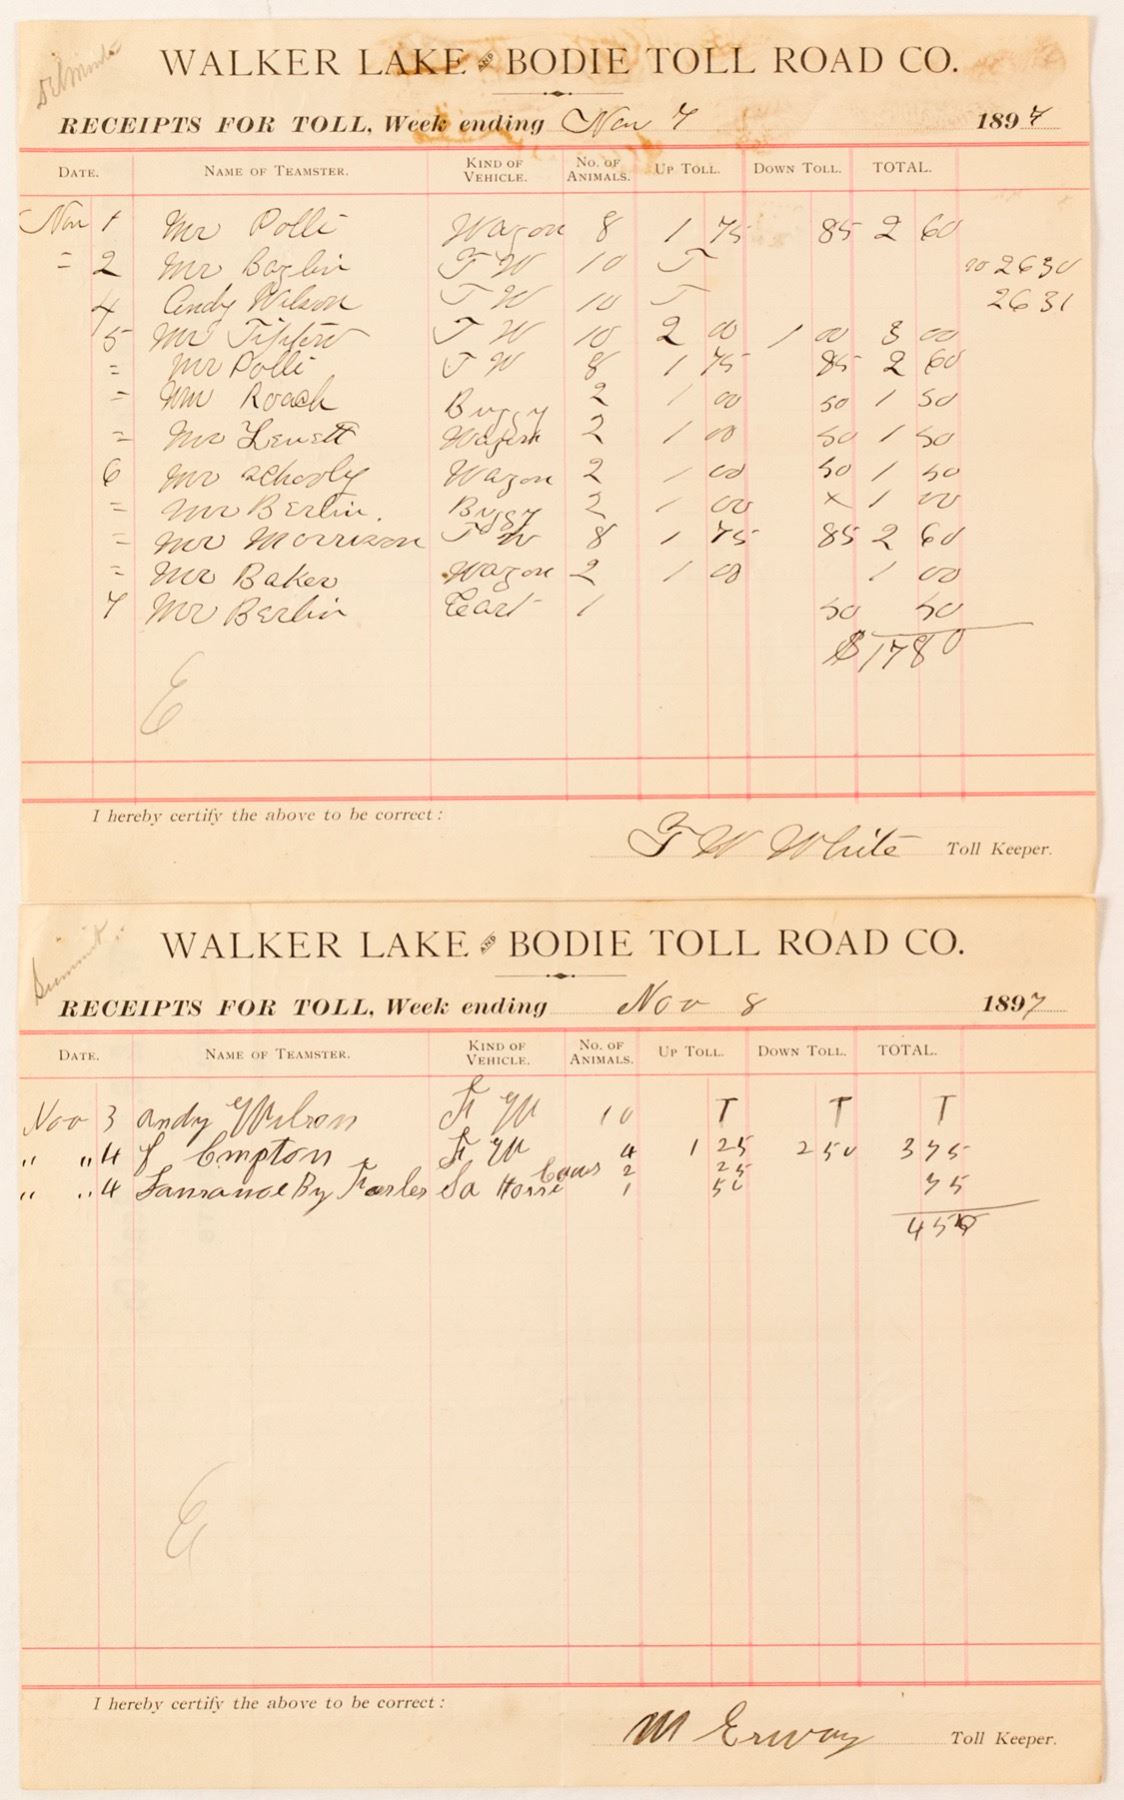 WALKER LAKE AND BODIE TOLL ROAD CO.
RECEIPTS FOR TOLL, Week ending Nov 7 1897
DATE. NAME OF TEAMSTER. KIND OF VEHICLE. NO. OF ANIMALS. UP TOLL. DOWN TOLL. TOTAL.
Nov 1 Mr Polli Wagon 8 1 75 85 2 60
= 2 Mr T W 10 T no 2630
4 Andy Wilson T W 10 T 2631
5 Mr T W 10 2 00 1 00 3 00
= Mr Polli T W 8 1 75 85 2 60
= Wm Roach Buggy 2 1 00 50 1 50
= Mr Levett Wagon 2 1 00 50 1 50
6 Mr Schooly Wagon 2 1 00 50 1 50
= Mr Berlin. Buggy 2 1 00 x 1 00
= Mr Morrison T W 8 1 75 85 2 60
= Mr Baker Wagon 2 1 00 1 00
7 Mr Berlin Cart 1 50 50
$17 80
E
I hereby certify the above to be correct:
F W White Toll Keeper.
Summit
WALKER LAKE AND BODIE TOLL ROAD CO.
RECEIPTS FOR TOLL, Week ending Nov 8 1897
DATE. NAME OF TEAMSTER. KIND OF VEHICLE. NO. OF ANIMALS. UP TOLL. DOWN TOLL. TOTAL.
Nov 3 Andy Wilson Ft W 10 T T T
" " 4 J Cmpton Ft W 4 1 25 2 50 3 75
Cows 2 25
" " 4 By Sa Horse 1 50 75
4 50
E
I hereby certify the above to be correct:
M Erway Toll Keeper.